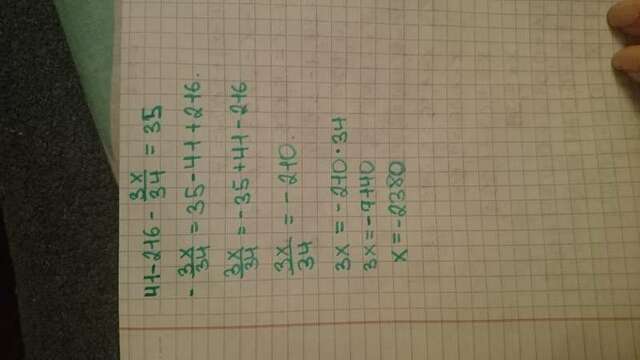 41-216 - 3x/34 = 35
- 3x/34 = 35-41+216.
3x/34 = -35+41-216
3x/34 = -210.
3x = -210·34
3x=-7140
x=-2380